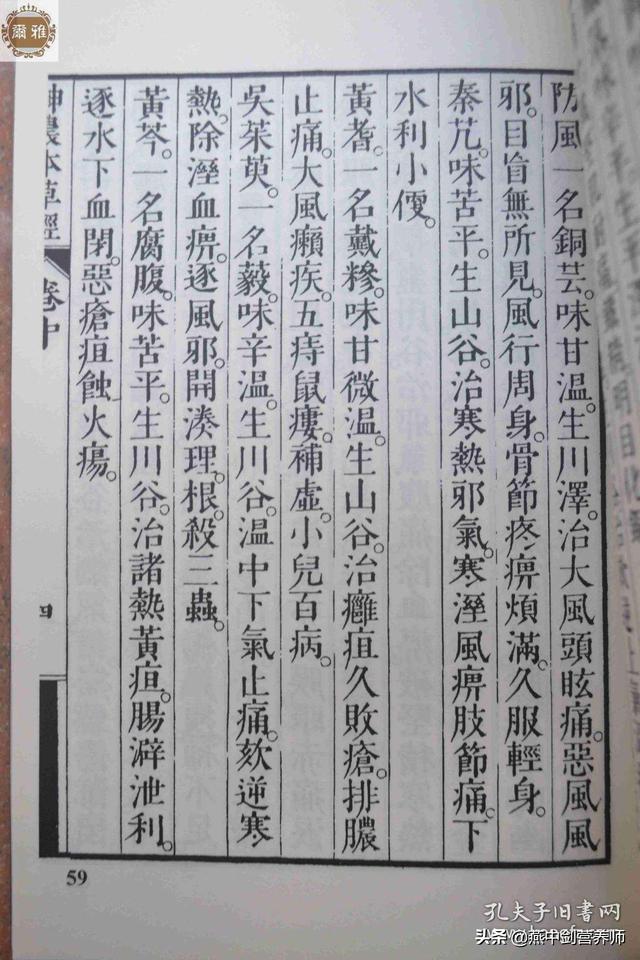 爾雅
防風一名銅芸。味甘溫。生川澤。治大風頭眩痛。惡風風
邪。目盲無所見。風行周身。骨節疼痹煩滿。久服輕身。
秦艽。味苦平。生山谷。治寒熱邪氣。寒溼風痹肢節痛。下
水利小便。
黃耆。一名戴糝。味甘微溫。生山谷。治癰疽久敗瘡。排膿
止痛。大風癩疾。五痔鼠瘻。補虛。小兒百病。
吳茱萸。一名藙。味辛溫。生川谷。溫中下氣止痛。欬逆寒
熱。除溼血痹。逐風邪。開湊理。根。殺三蟲。
黃芩。一名腐腹。味苦平。生川谷。治諸熱黃疸。腸澼泄利。
逐水下血閉。惡瘡疽蝕火瘍。
神農本草經
卷中
四
59
孔夫子旧书网
头条@燕中剑营养师